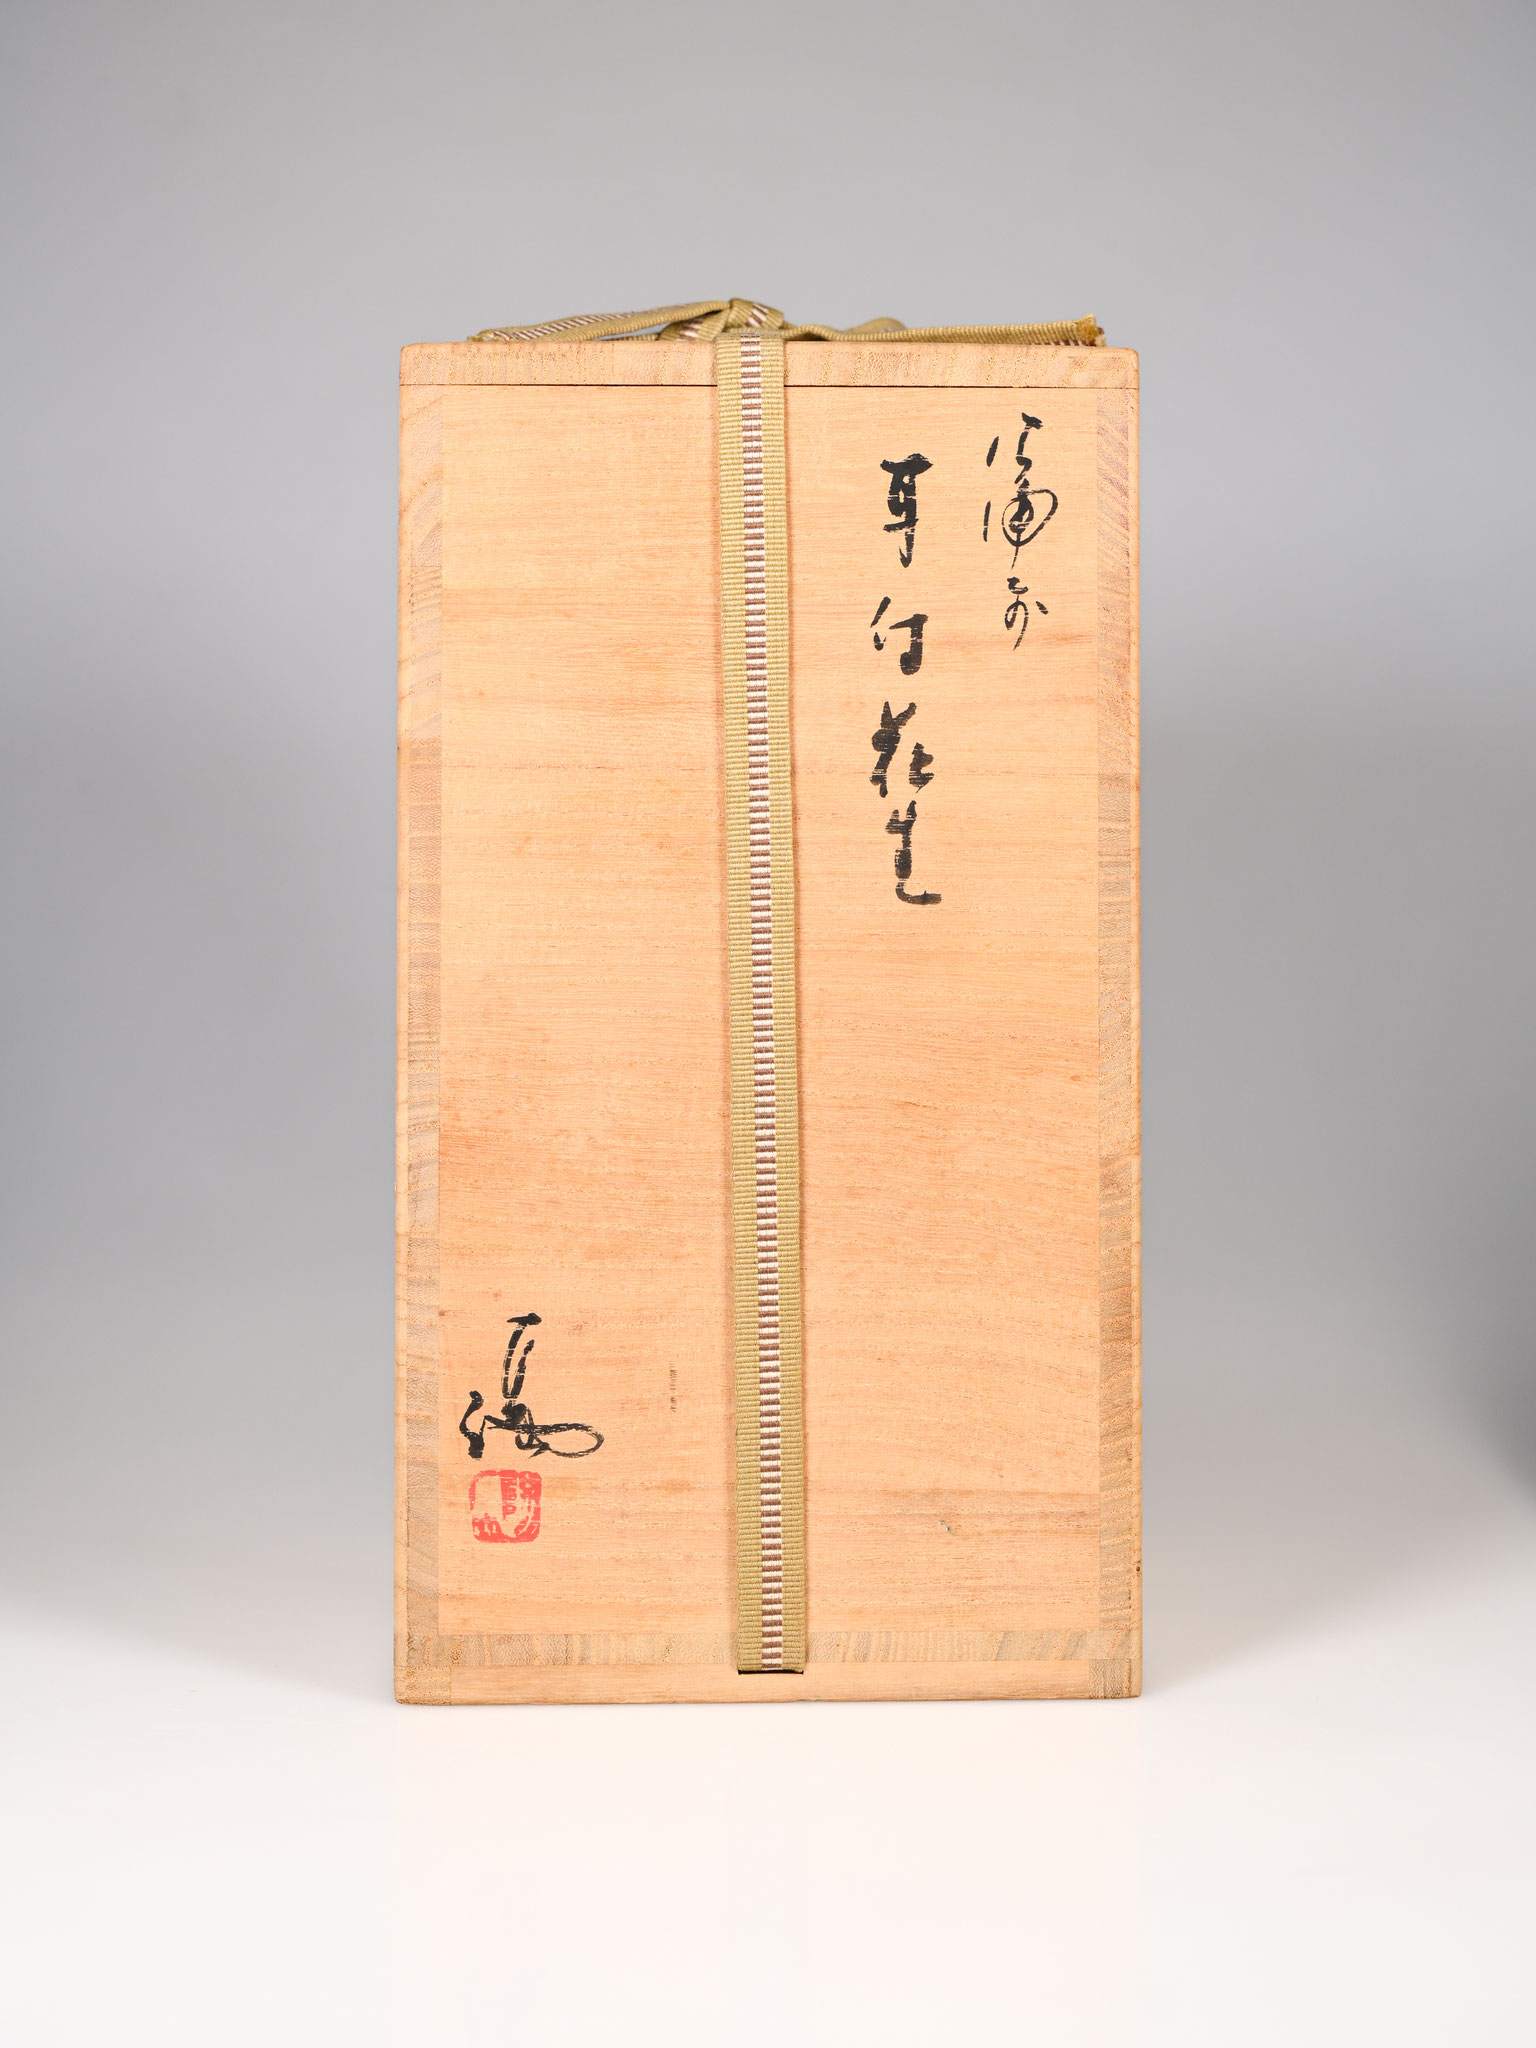 備前
耳付花生